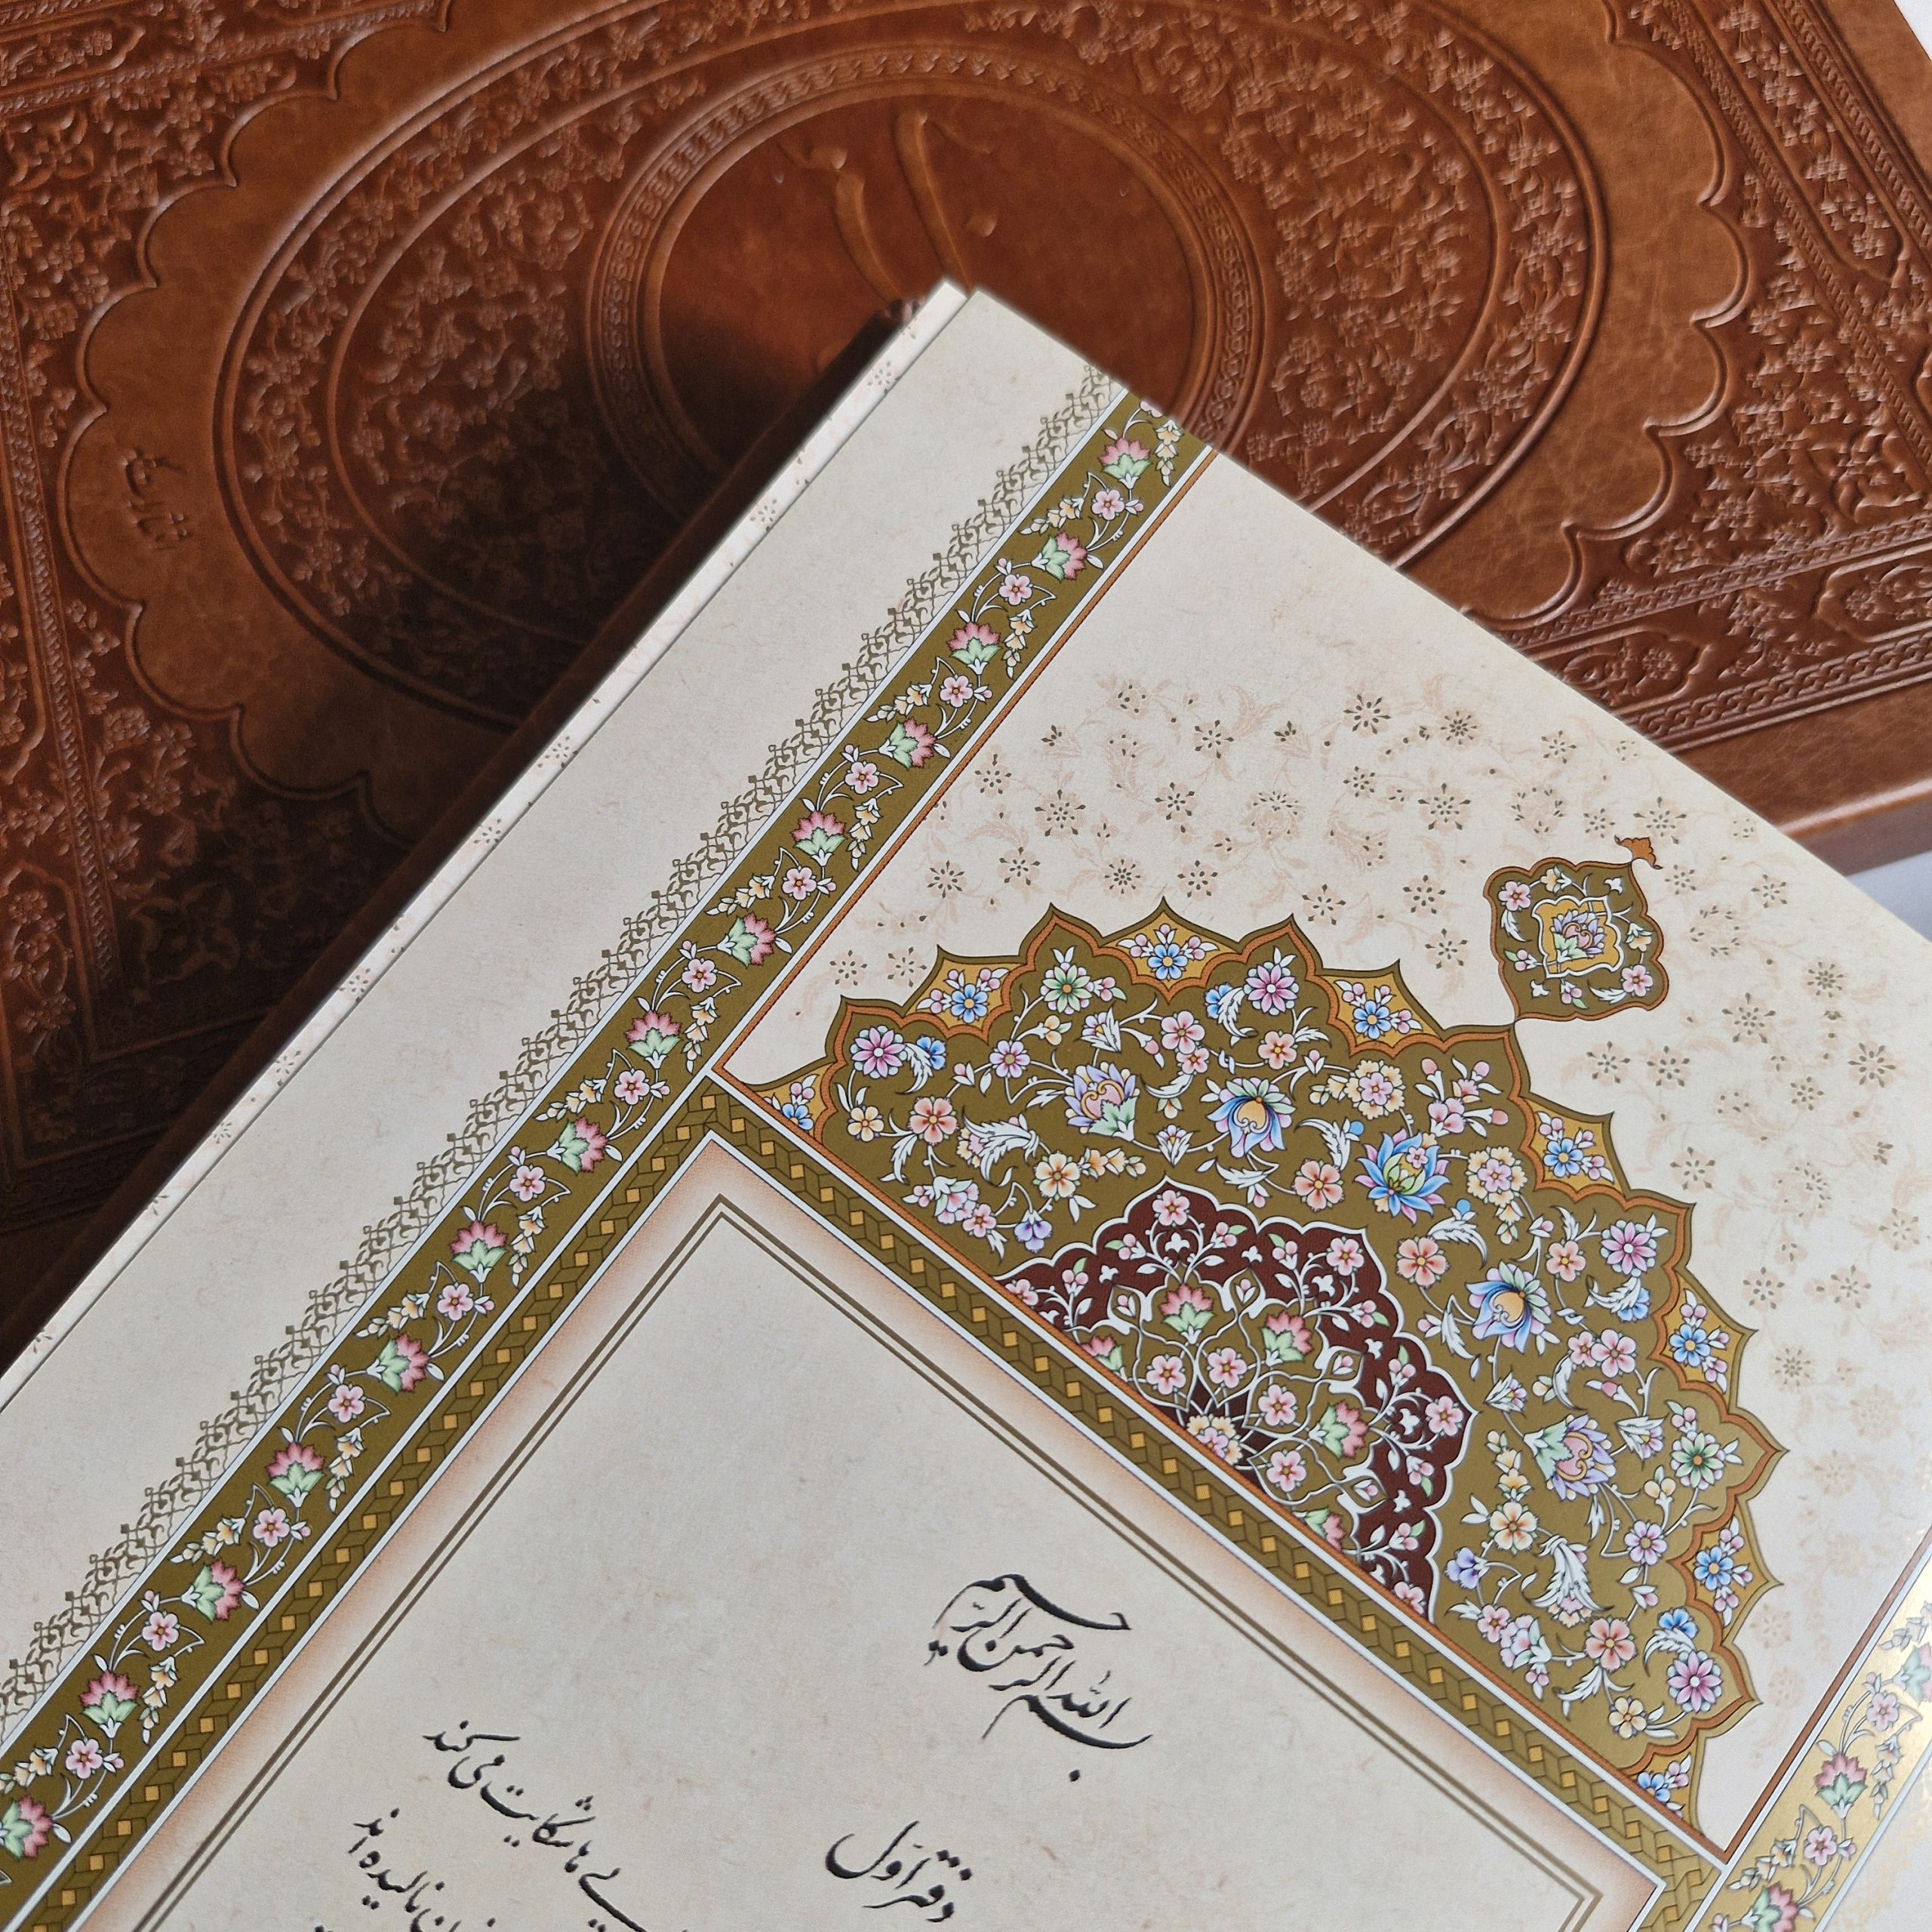 بسم الله الرحمن الرحیم
دفتر اول
یی ها شکایت می کند
نالیده اند